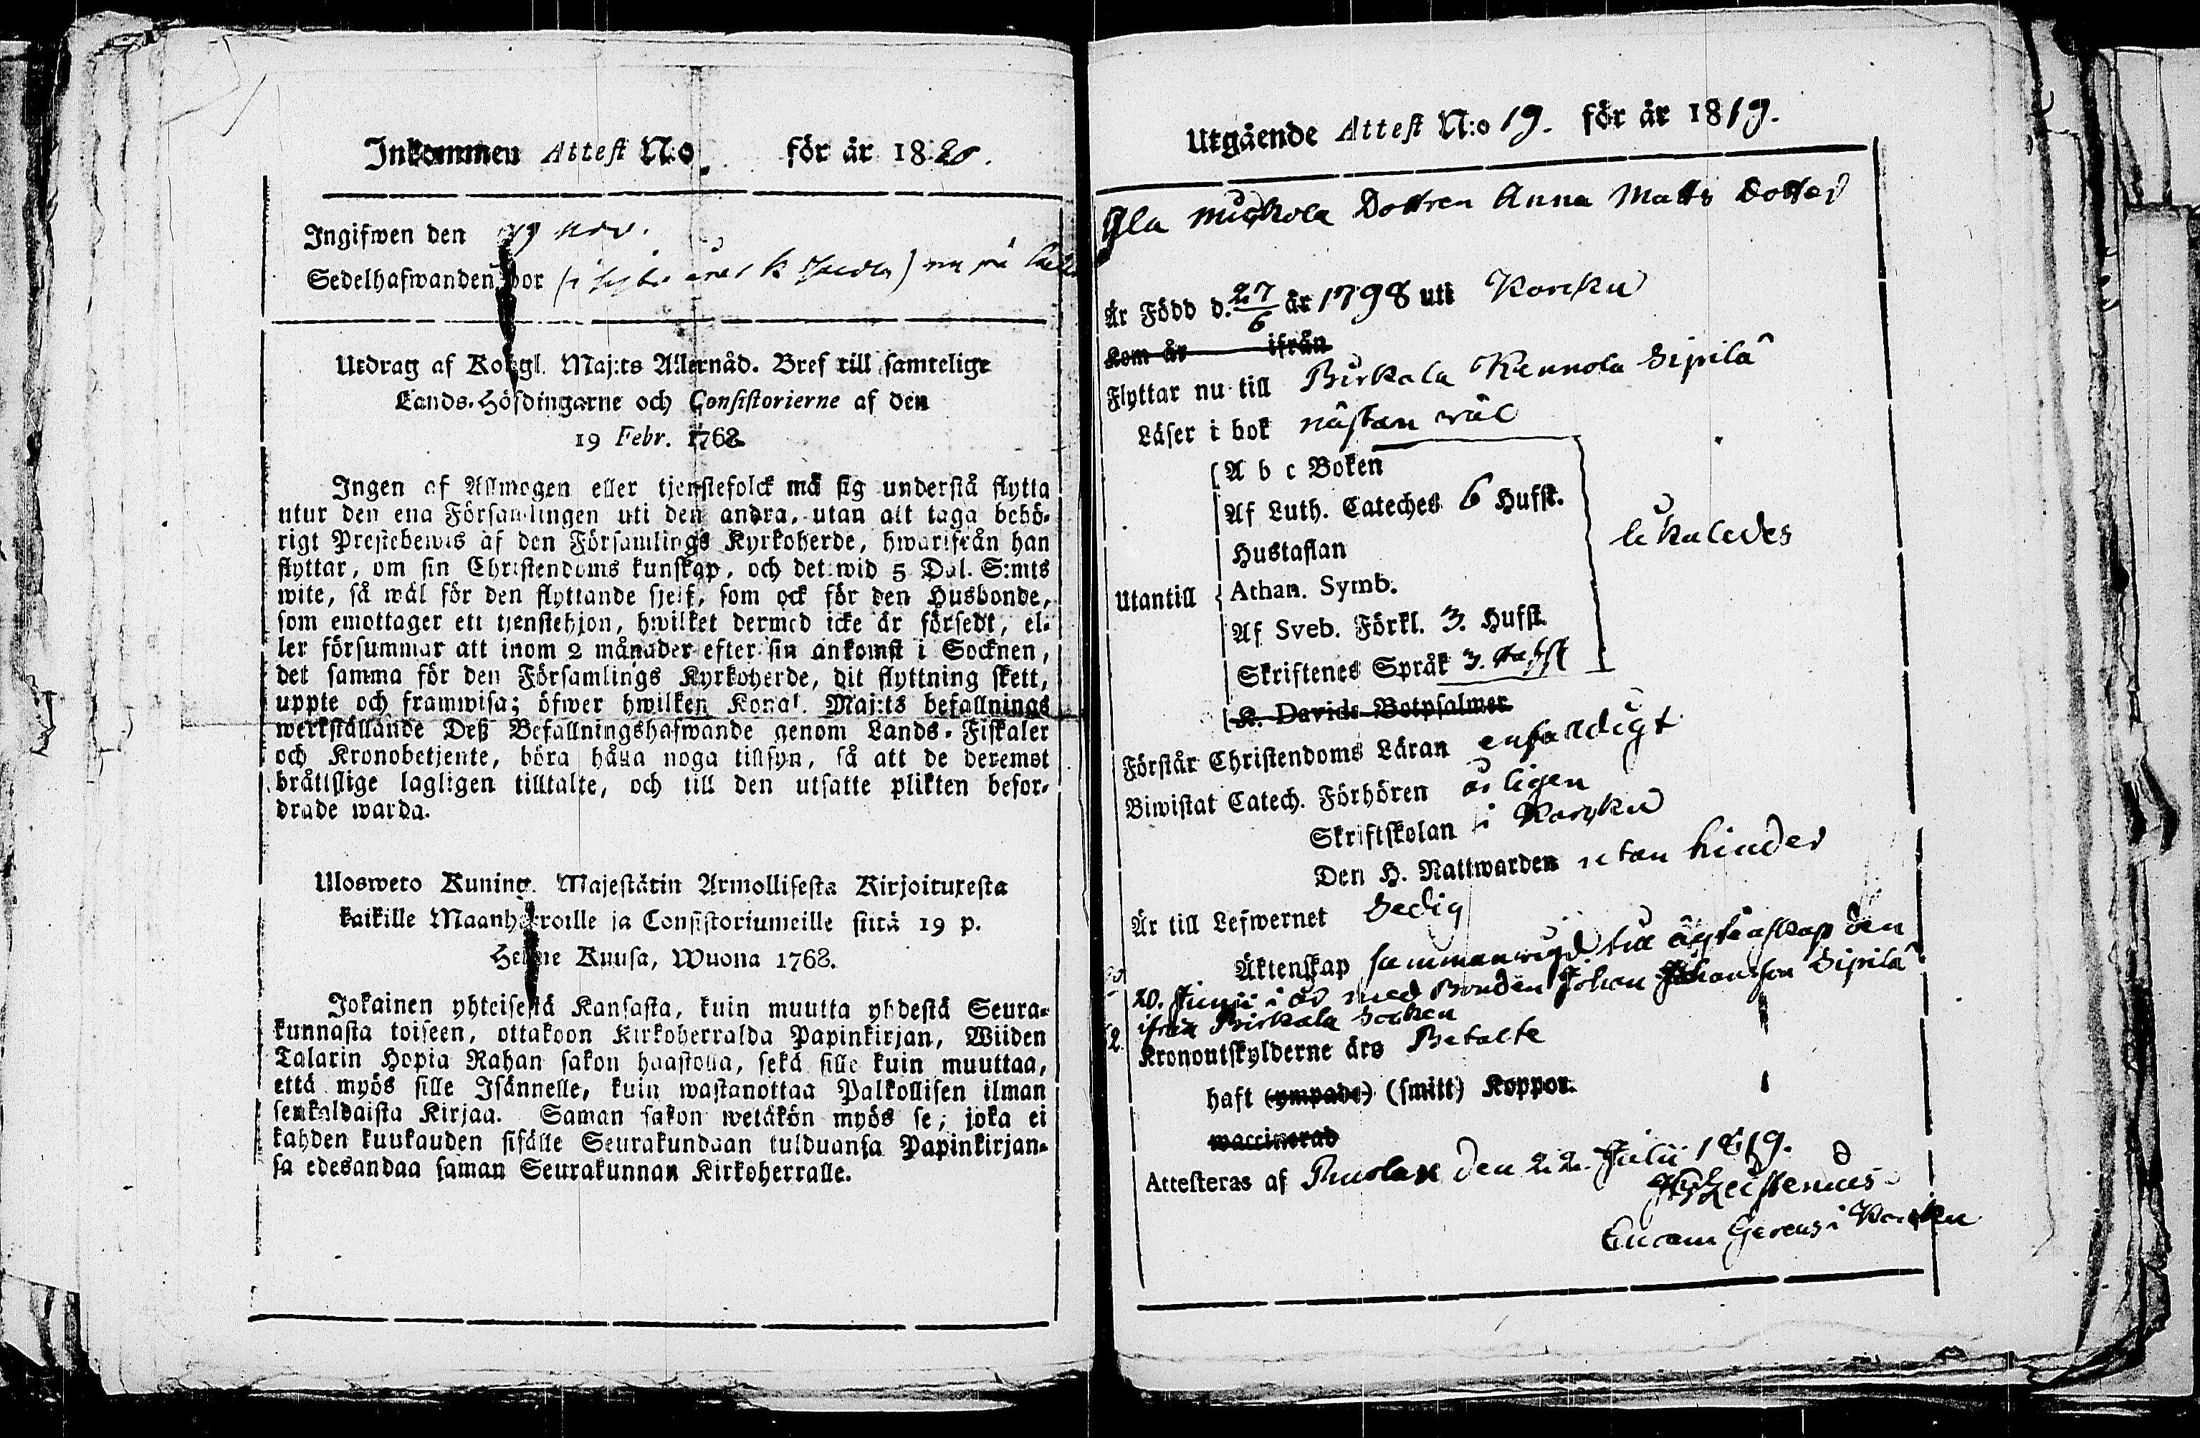 Inkommen Attest N:o för år 1820.
Ingifwen den 19 nov.
Sedelhafwanden bor
Utdrag af Kongl. Maj:ts Allernåd. Bref till samtelige
Lands-Höfdingarne och Consistorierne af den
19 Febr. 1768.
Ingen af Allmogen eller tjenstefolck må sig understå flytta
utur den ena Församlingen uti den andra, utan att taga behö-
rigt Prestebewis af den Församlings Kyrkoherde, hwarifrån han
flyttar, om sin Christendoms kunskap, och det wid 5 Dal. S:mts
wite, så wäl för den flyttande sjelf, som ock för den Husbonde,
som emottager ett tjenstehjon, hwilket dermed icke är försedt, el-
ler försummar att inom 2 månader efter sin ankomst i Socknen,
det samma för den Församlings Kyrkoherde, dit flyttning skett,
uppte och framwisa; öfwer hwilken Kongl. Maj:ts befallnings
werkställande Deß Befallningshafwande genom Lands-Fiskaler
och Kronobetjente, böra hålla noga tillsyn, så att de deremot
bråttslige lagligen tilltalte, och till den utsatte plikten befor-
drade warda.
Ulosweto Kuning. Majestätin Armollisesta Kirjoituxesta
kaikille Maanherroille ja Consistoriumeille siitä 19 p.
Helme Kuusa, Wuona 1768.
Jokainen yhteisestä Kansasta, kuin muutta yhdestä Seura-
kunnasta toiseen, ottakoon Kirkoherralda Papinkirjan, Wiiden
Talarin Hopia Rahan sakon haastolla, sekä sille kuin muuttaa,
että myös sille Isännelle, kuin wastanottaa Palkollisen ilman
senkaldaista Kirjaa. Saman sakon wetäkön myös se, joka ei
kahden kuukauden sisälle Seurakundaan tulduansa Papinkirjan-
sa edesandaa saman Seurakunnan Kirkoherralle.
Utgående Attest N:o 19. för år 1819.
Dottren Anna Matts Dotter
Är Född d. 27/6 år 1798 uti Karkku
Kom år ifrån
Flyttar nu till Birkala Kennola Sipilä
Läser i bok nästan wäl
A b c Boken
Af Luth. Cateches 6 Hufst.
Hustaflan
likaledes
Utantill
Athan. Symb.
Af Sveb. Förkl. 3. Hufst.
Skriftenes Språk 3. Hufst
K. Davids Botpsalmer
Förstår Christendoms Läran enfaldigt
Biwistat Catech. Förhören årligen
Skriftskolan i Karkku
Den H. Nattwarden utan hinder
Är till Lefwernet Sedig
Äktenskap sammanvigd till ägtenskap den
20. Junii i år med Bonden Johan Johansson Sipilä
ifrån Birkala Socken
Kronoutskylderne äro Betalte
haft (ympade) (smitt) Koppor.
waccinerad
Attesteras af den 22. Julii 1819.
i Karkku